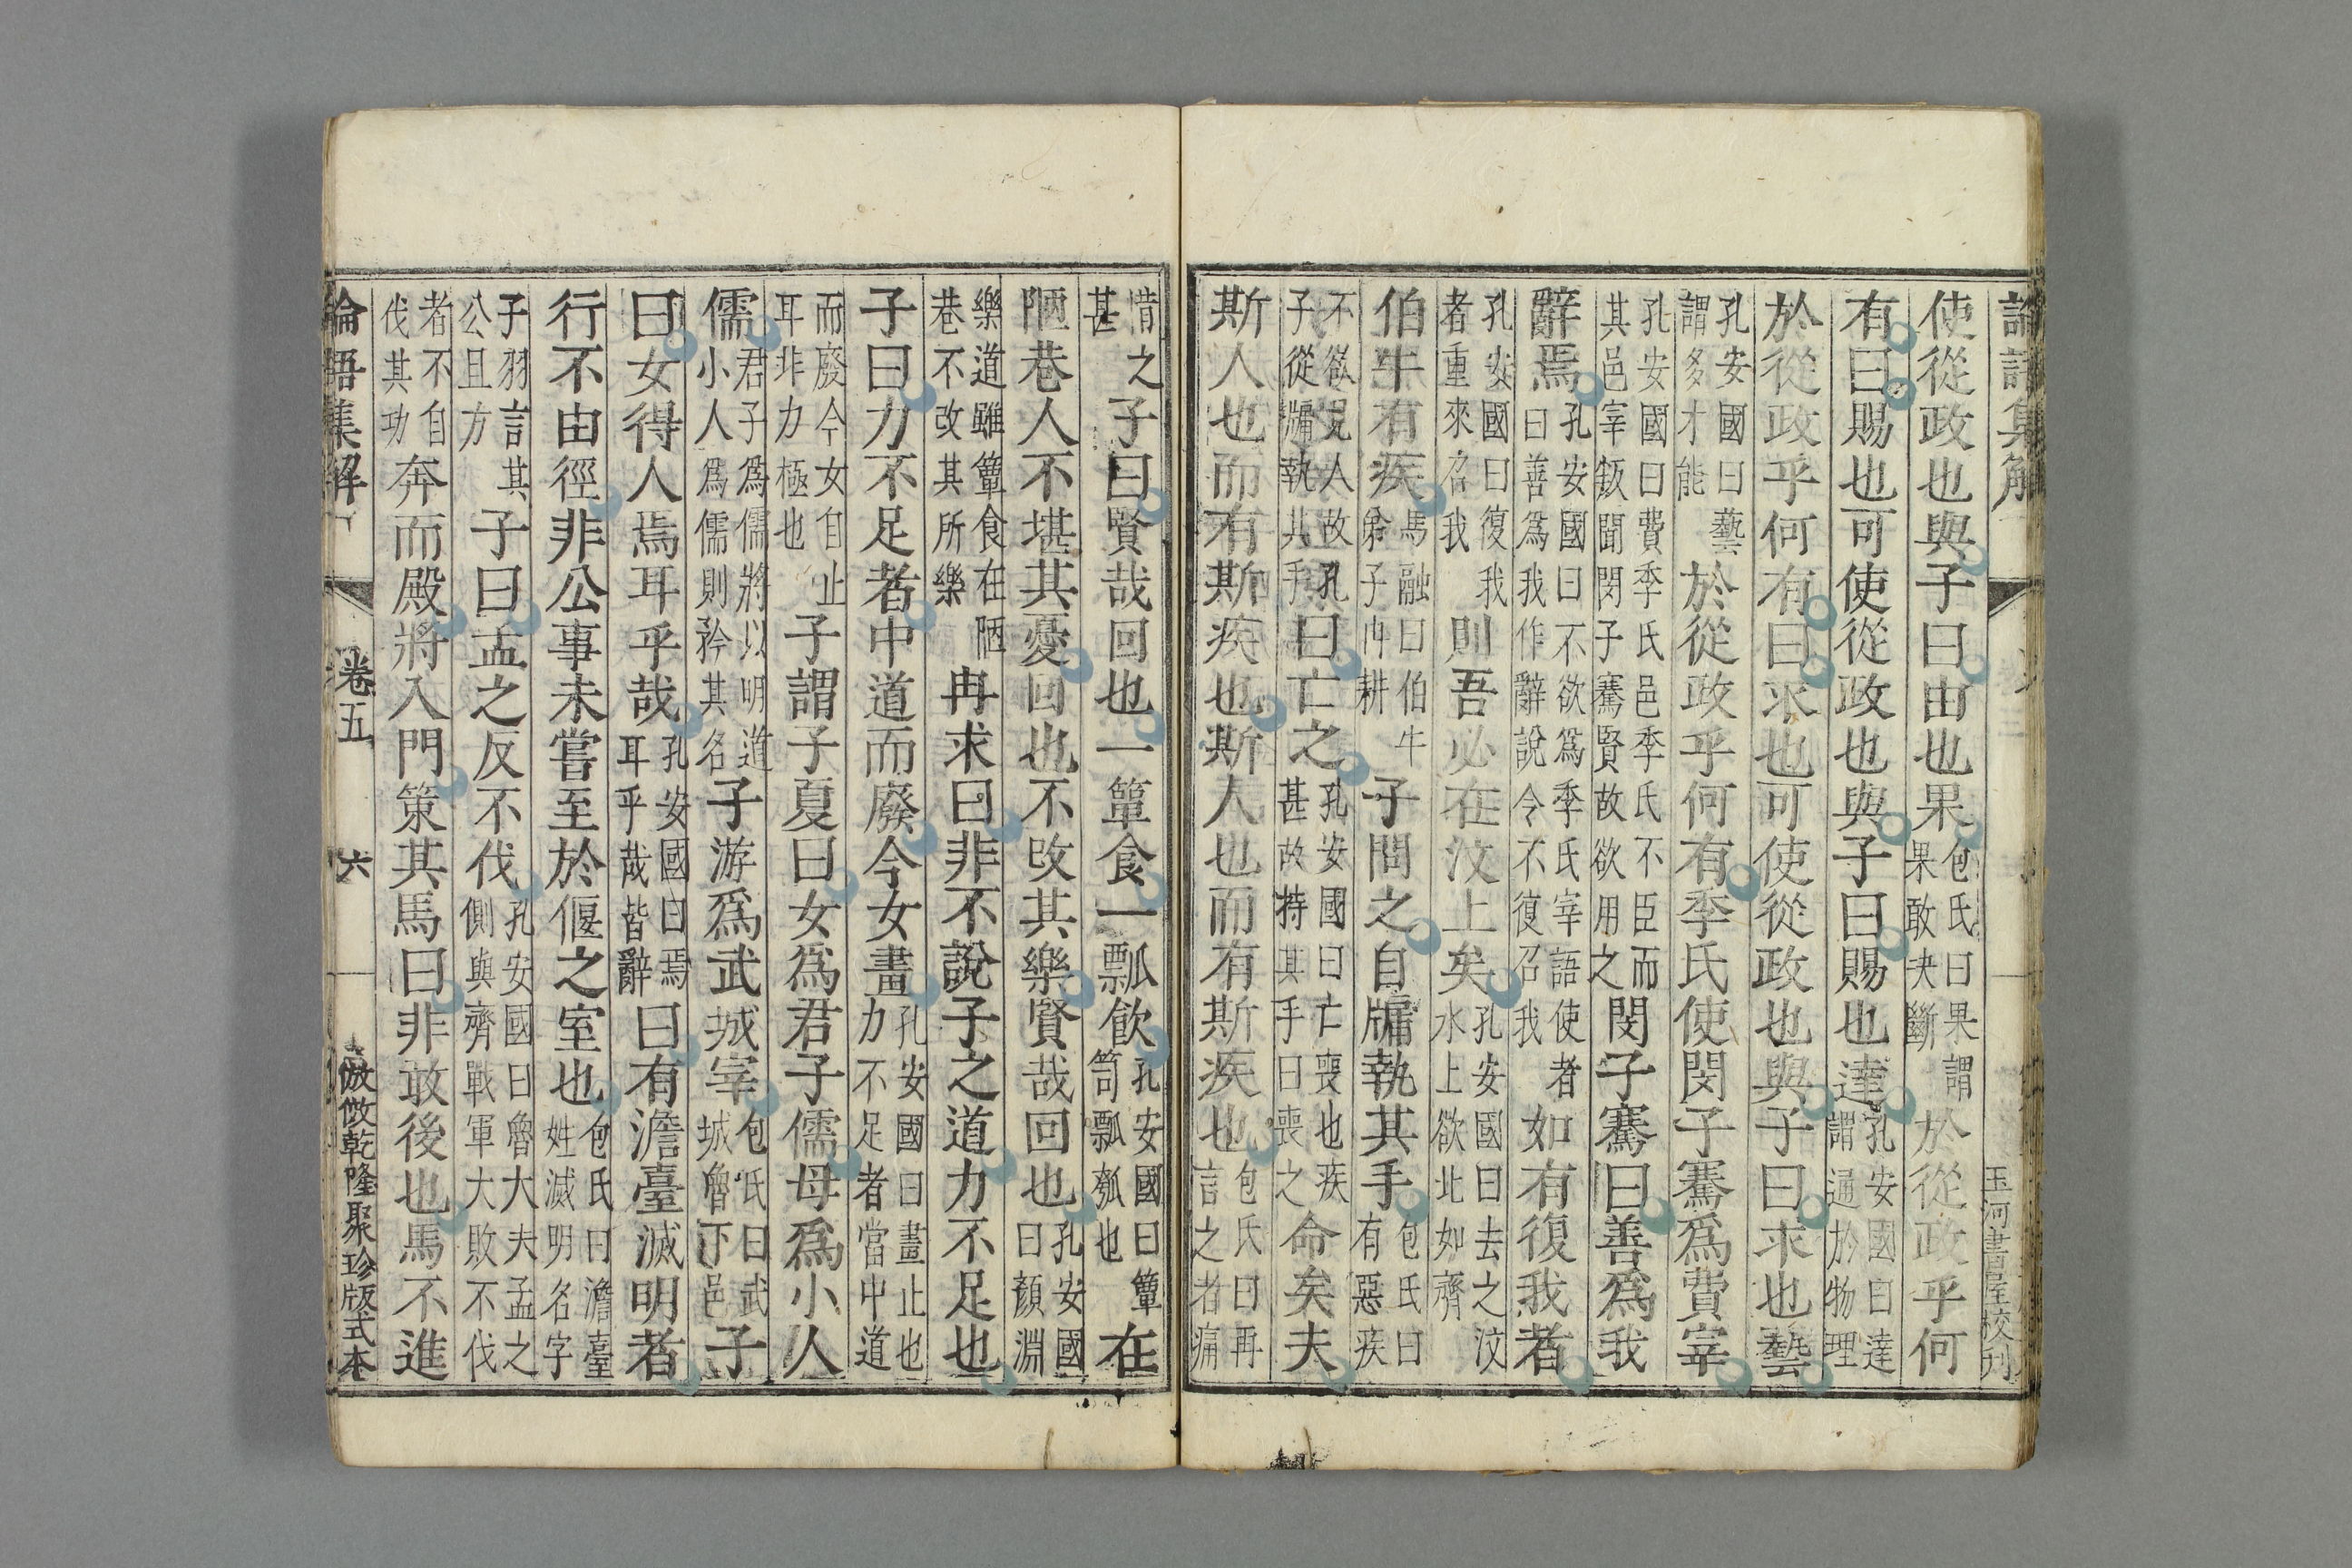 論語集解 玉河書屋校刊
使從政也與子曰由也果包氏曰果謂果敢决斷於從政乎何
有曰賜也可使從政也與子曰賜也達孔安國曰達謂通於物理
於從政乎何有曰求也可使從政也與子曰求也藝
孔安國曰藝謂多才能於從政乎何有季氏使閔子騫爲費宰
孔安國曰費季氏邑季氏不臣而其邑宰叛聞閔子騫賢故欲用之閔子騫曰善爲我
辭焉孔安國曰不欲爲季氏宰語使者曰善爲我作辭說令不復召我如有復我者
孔安國曰復我者重來召我則吾必在汶上矣孔安國曰去之汶水上欲北如齊
伯牛有疾馬融曰伯牛弟子冉耕子問之自牖執其手包氏曰有惡疾
不欲見人故孔子從牖執其手曰亡之孔安國曰亡喪也疾甚故持其手曰喪之命矣夫
斯人也而有斯疾也斯人也而有斯疾也包氏曰再言之者痛
惜之甚子曰賢哉回也一簞食一瓢飮孔安國曰簞笥瓢瓠也在
陋巷人不堪其憂回也不改其樂賢哉回也孔安國曰顏淵
樂道雖簞食在陋巷不改其所樂冉求曰非不說子之道力不足也
子曰力不足者中道而廢今女畫孔安國曰畫止也力不足者當中道
而廢今女自止耳非力極也子謂子夏曰女爲君子儒母爲小人
儒君子爲儒將以明道小人爲儒則矜其名子游爲武城宰包氏曰武城魯下邑子
曰女得人焉耳乎哉孔安國曰焉耳乎哉皆辭曰有澹臺滅明者
行不由徑非公事未嘗至於偃之室也包氏曰澹臺姓滅明名字
子羽言其公且方子曰孟之反不伐孔安國曰魯大夫孟之側與齊戰軍大敗不伐
者不自伐其功奔而殿將入門策其馬曰非敢後也馬不進
論語集解 卷五 六 倣乾隆聚珍版式本